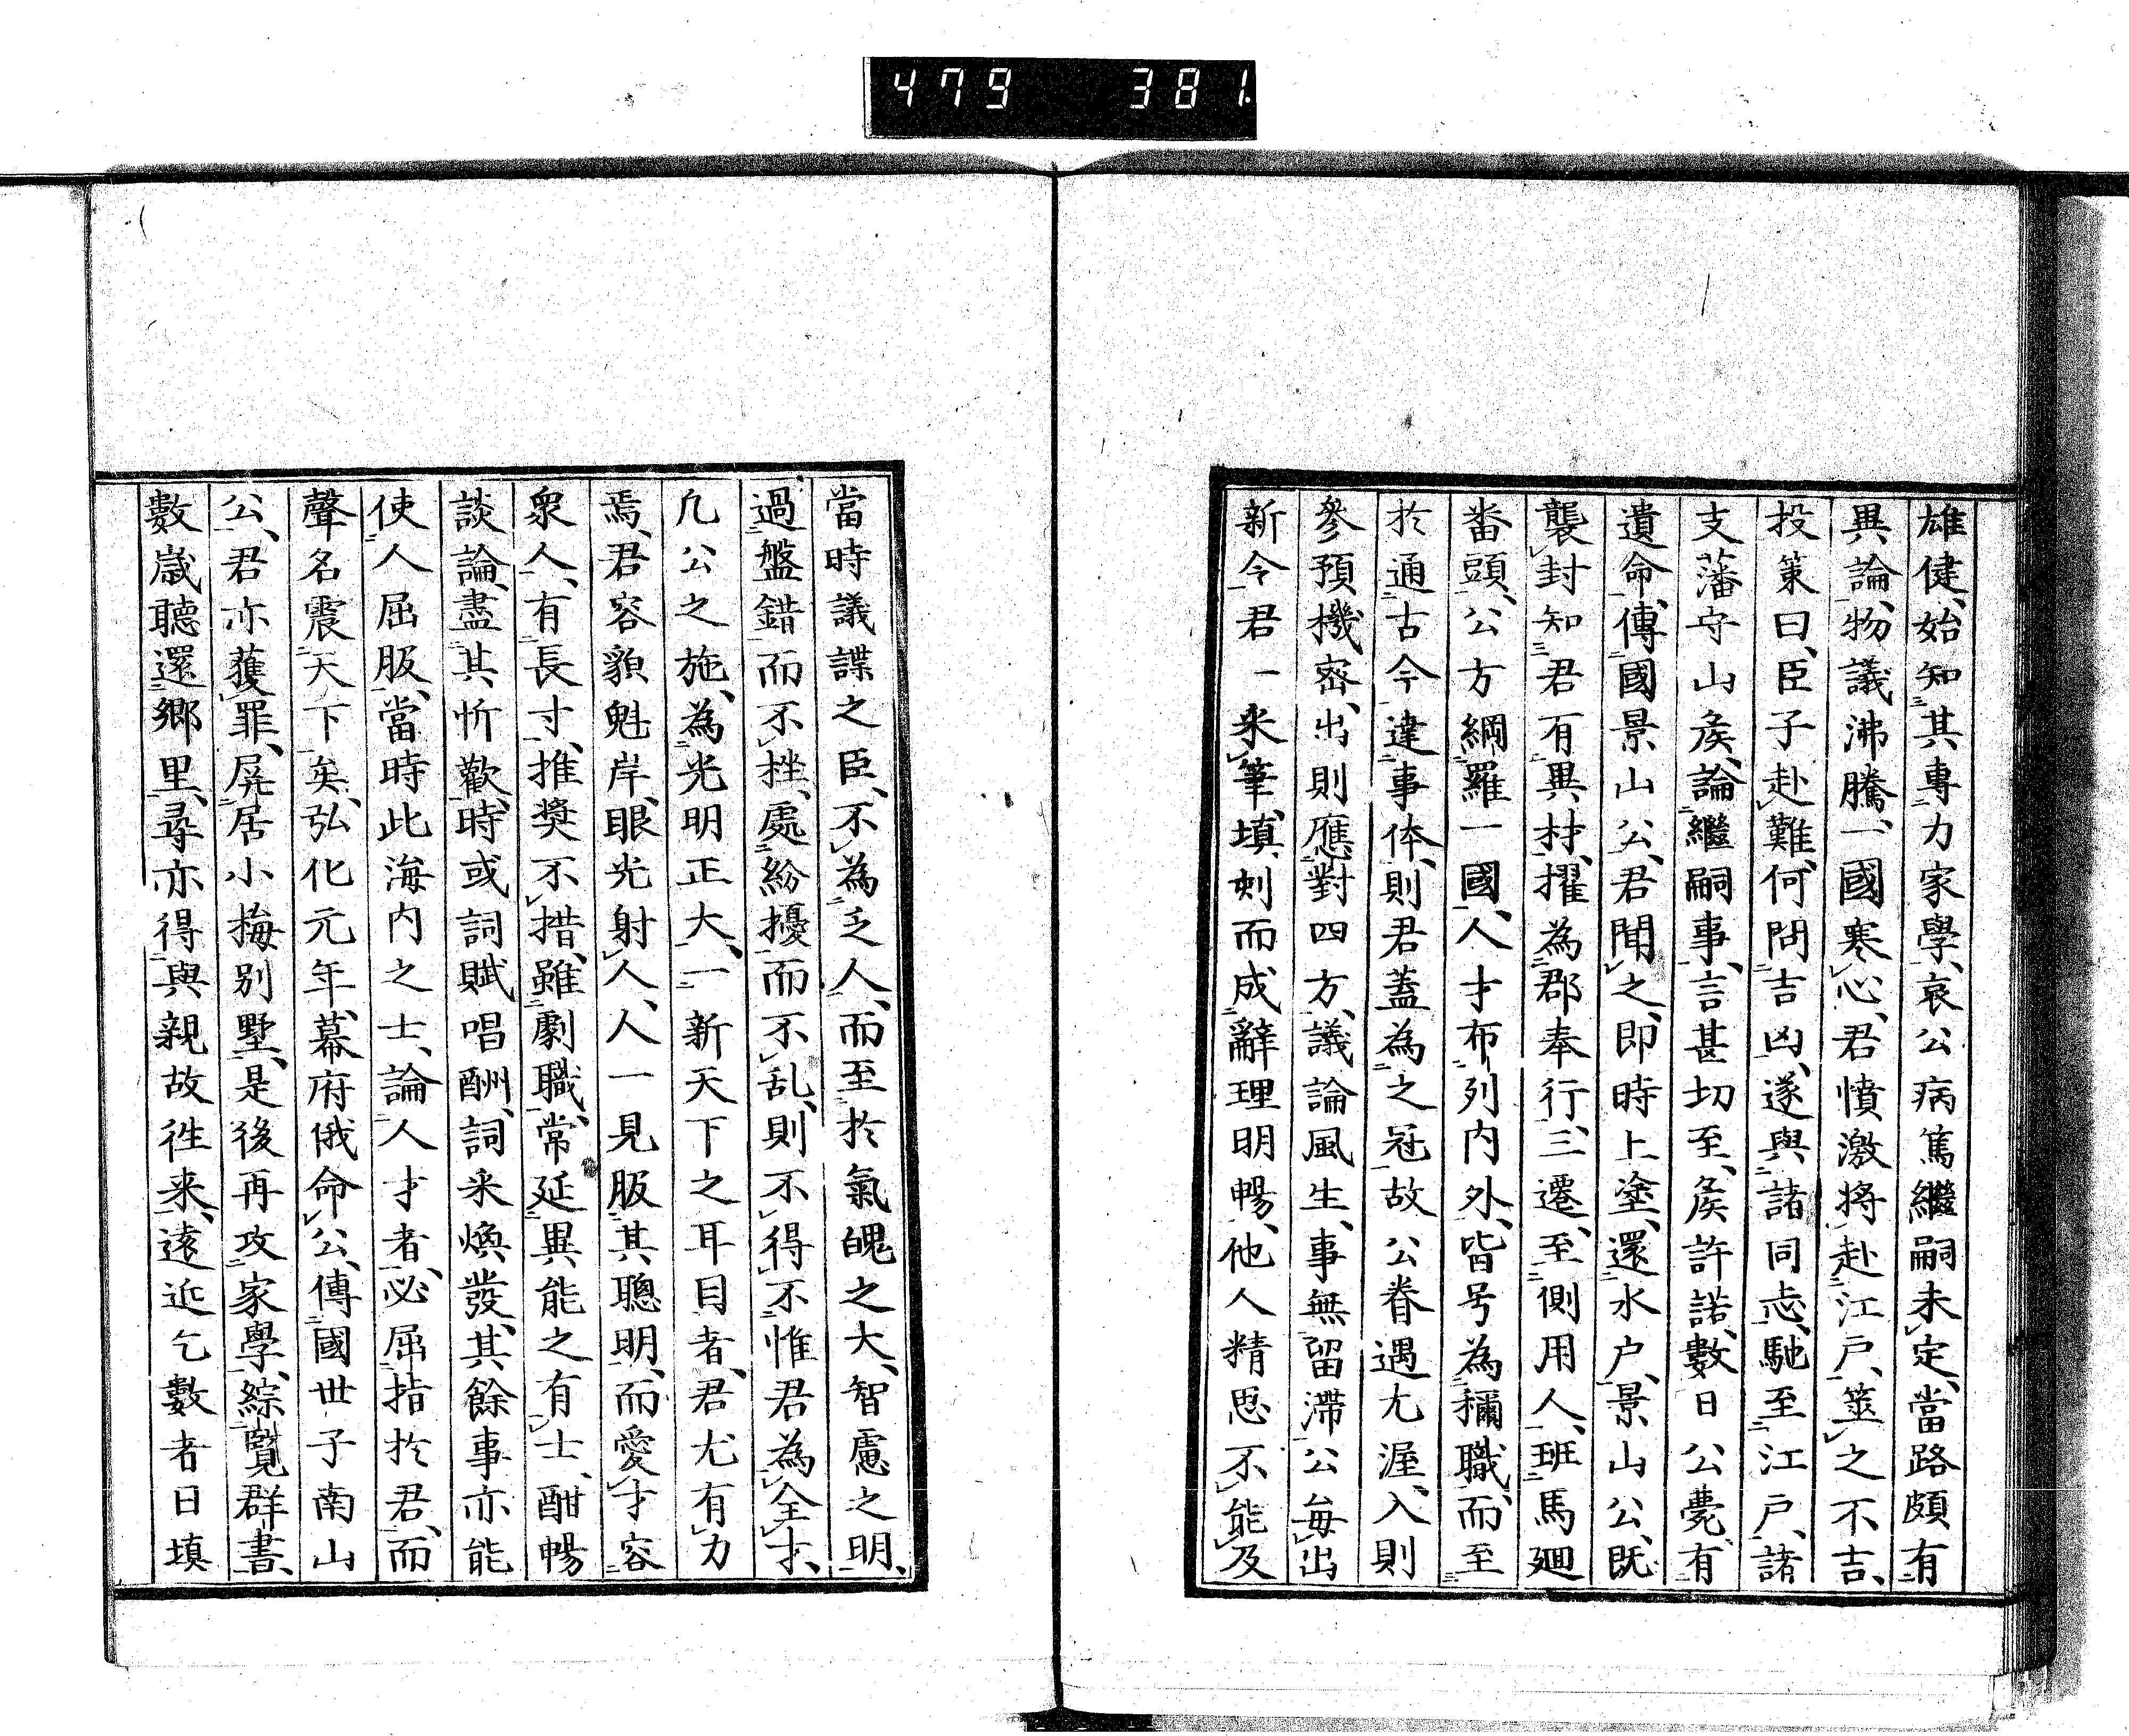 479 381.
雄健、始知其專力家學、哀公病篤繼嗣未定、當路頗有
異論、物議沸騰、一國寒心、君憤激將赴江戸、筮之不吉、
投策曰、臣子赴難、何問吉凶、遂與諸同志、馳至江戸、諸
支藩守山矦、論繼嗣事、言甚切至、矦許諾、數日公薨、有
遺命、傳國景山公、君聞之、即時上塗、還水户、景山公、既
襲封知君有異材、擢為郡奉行、三遷、至側用人、班馬廻
畨頭、公方綱羅一國、人才布列内外、皆号為稱職、而至
於通古今達事体、則君蓋為之冠、故公眷遇尤渥、入則
參預機密、出則應對四方、議論風生、事無留滯、公每出
新令君一釆筆、填刻而成、辭理明暢、他人精思不能及
當時議諜之臣、不為乏人、而至於氣魄之大、智慮之明、
過盤錯而不挫、處紛擾而不乱、則不得不惟君為全才、
凢公之施、為光明正大、一新天下之耳目者、君尤有力
焉、君容貌魁岸、眼光射人、人一見服其聰明、而愛才容
衆人、有長寸、推奬不措、雖劇職、常延異能之有士、酣暢
談論、盡其忻歡、時或詞賦唱酬、詞釆煥發、其餘事亦能
使人屈服、當時此海内之士、論人才者、必屈指於君、而
聲名震天下矣、弘化元年、幕府俄命公、傳國世子南山
公、君亦獲罪、屏居小梅別墅、是後再攻家學、綜覧群書、
數歳聽還鄉里、尋亦得與親故徃来、遠近乞數者日填